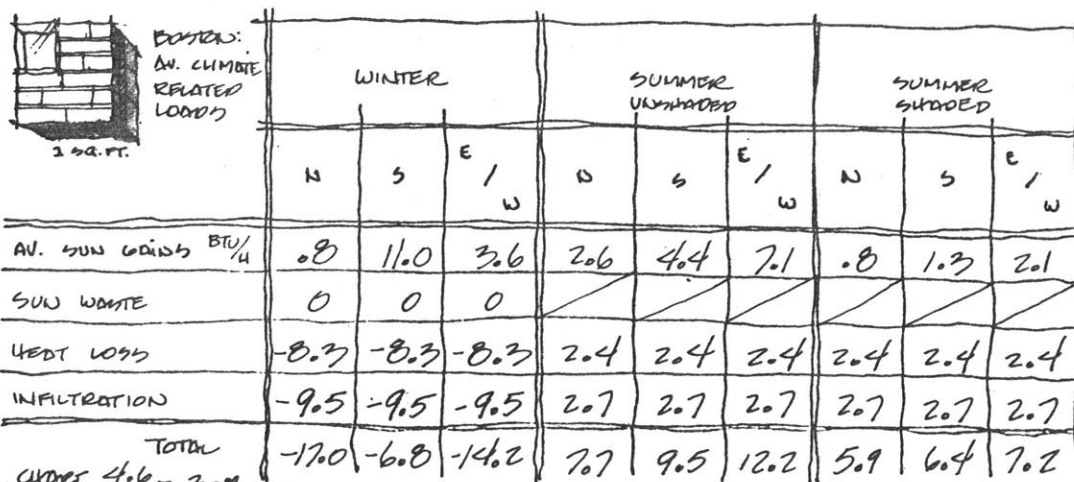 BOSTON:
AV. CLIMATE
RELATED
LOADS
1 SQ. FT.
WINTER
SUMMER UNSHADED
SUMMER SHADED
N S E/W N S E/W N S E/W
AV. SUN GAINS BTU/H .8 11.0 3.6 2.6 4.4 7.1 .8 1.3 2.1
SUN WASTE 0 0 0
HEAT LOSS -8.3 -8.3 -8.3 2.4 2.4 2.4 2.4 2.4 2.4
INFILTRATION -9.5 -9.5 -9.5 2.7 2.7 2.7 2.7 2.7 2.7
TOTAL -17.0 -6.8 -14.2 7.7 9.5 12.2 5.9 6.4 7.2
CHART 4.6